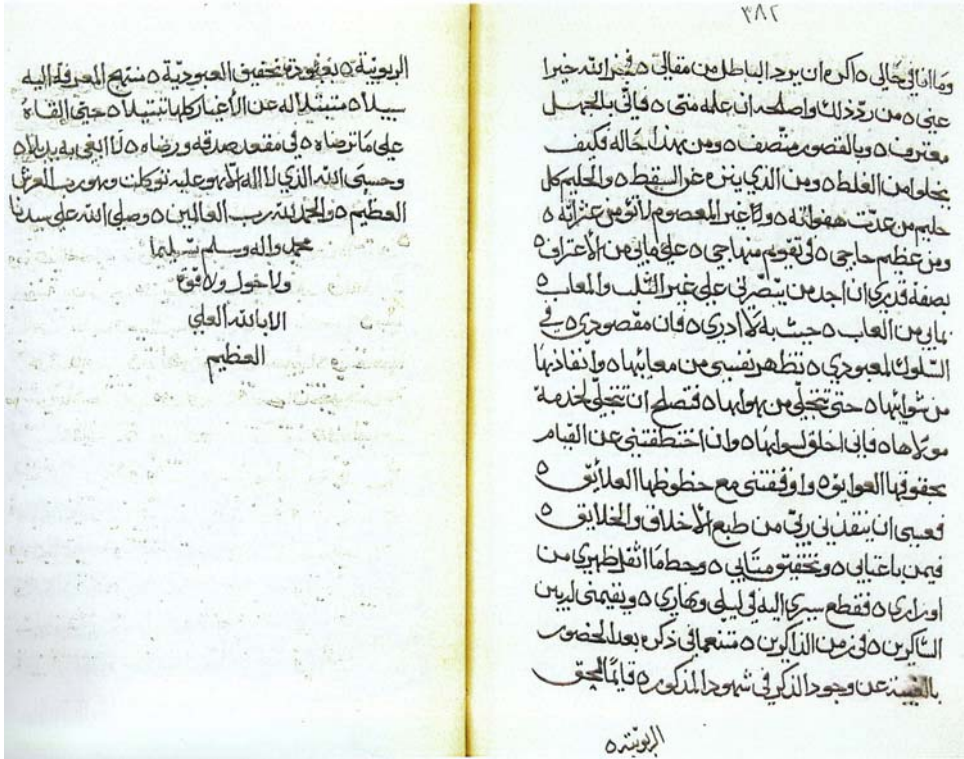 ٣٨٢
وما أنا في حالي ٥ أكره ان يرد الباطل من مقالي ٥ فجزا الله خيرا
عني ٥ من ردّ ذلك واصلحه ان علمه منّي ٥ فاني بالجهل
معترف ٥ وبالقصور متّصف ٥ ومن هذا حاله فكيف
يخلوا من الغلط ٥ ومن الذي ينزه عن السقط ٥ والحليم كل
حليم من عدّت هفواته ٥ ولا غير المعصوم لا تؤمن عثراته ٥
ومن عظيم حاجي ٥ في تقويم منهاجي ٥ على مابي من الأعتراف ٥
بصفة قدري ان اجد من يبصّرني على غير الثلب والمعاب ٥
بمابي من العاب ٥ حيث به لا ادري ٥ فان مقصودي ٥ في
السّلوك لمعبودي ٥ تطهر نفسي من معائبها ٥ وانقاذها
من شوائبها ٥ حتى تتخلّى من هواها ٥ فتصلح ان تتحلّى لخدمة
مولاها ٥ فاني اخلق لسواها ٥ وان اختطفتني عن القيام
بحقوقها العوايق ٥ واوقفتني مع حظوظها العلايق ٥
فعسى ان ينقذني ربّي من طبع الأخلاق والخلايق ٥
فيمن باغنايي ٥ وتحقيق متابي ٥ وحط ما اثقل ظهري من
اوزاري ٥ فقطع سيري اليه في ليلي ونهاري ٥ ويقيمني لديه بين
الشاكرين ٥ في زمن الذاكرين ٥ متنعما في ذكره بعد الحضور
بالغيبة عن وجود الذكر في شهود المذكور ٥ قايمًا لحق
الربوبيّة ٥
الربوبيّة ٥ بعبودة تحقيق العبوديّة ٥ منتهج المعرفة اليه
سبيلا ٥ متبتلا له عن الأغيار كلها تبتيلا ٥ حتى القاه
على ما ترضاه ٥ في مقعد صدقه ورضاه ٥ لا ابغي به بديلا ٥
وحسبي الله الذي لا اله الا هو عليه توكلت وهو رب العرش
العظيم ٥ والحمد لله رب العالمين ٥ وصلى الله على سيدنا
محمد واله وسلم تسليما
ولا حول ولا قوة
الا بالله العلي
العظيم